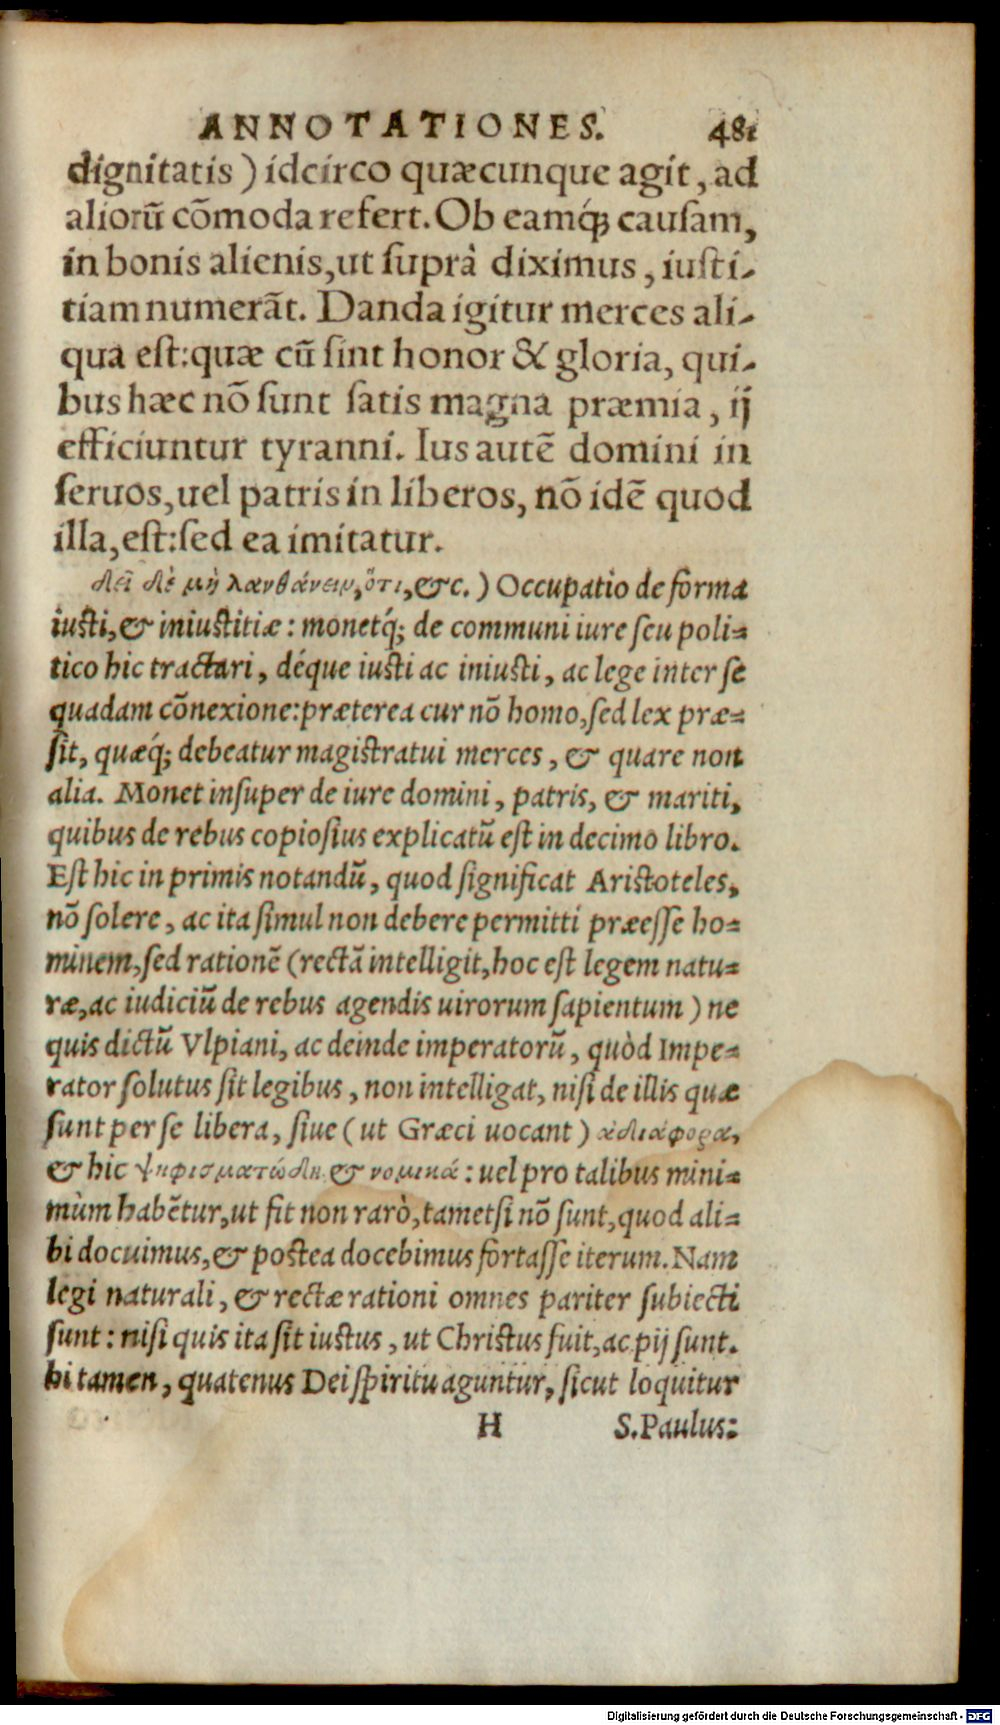 ANNOTATIONES. 481
dignitatis) idcirco quæcunque agit, ad
aliorũ cõmoda refert. Ob eamq́ꝫ causam,
in bonis alienis, ut suprà diximus, iusti-
tiam numerãt. Danda igitur merces ali-
qua est: quæ cũ sint honor & gloria, qui-
bus hæc nõ sunt satis magna præmia, ij
efficiuntur tyranni. Ius autẽ domini in
seruos, uel patris in liberos, nõ idẽ quod
illa, est: sed ea imitatur.
δεῖ δὲ μὴ λανθάνειν, ὅτι, &c.) Occupatio de forma
iusti, & iniustitiæ: monetq́; de communi iure seu poli=
tico hic tractari, déque iusti ac iniusti, ac lege inter se
quadam cõnexione: præterea cur nõ homo, sed lex præ=
sit, quæq́; debeatur magistratui merces, & quare non
alia. Monet insuper de iure domini, patris, & mariti,
quibus de rebus copiosius explicatũ est in decimo libro.
Est hic in primis notandũ, quod significat Aristoteles,
nõ solere, ac ita simul non debere permitti præesse ho=
minem, sed rationẽ (rectã intelligit, hoc est legem natu=
ræ, ac iudiciũ de rebus agendis uirorum sapientum) ne
quis dictũ Vlpiani, ac deinde imperatorũ, quòd Impe=
rator solutus sit legibus, non intelligat, nisi de illis quæ
sunt per se libera, siue (ut Græci uocant) ἀδιάφορα,
& hic ψηφισματώδη & νομικά: uel pro talibus mini=
mùm habẽtur, ut fit non rarò, tametsi nõ sunt, quod ali=
bi docuimus, & postea docebimus fortasse iterum. Nam
legi naturali, & rectæ rationi omnes pariter subiecti
sunt: nisi quis ita sit iustus, ut Christus fuit, ac pij sunt.
hi tamen, quatenus Dei spiritu aguntur, sicut loquitur
H S. Paulus:
Digitalisierung gefördert durch die Deutsche Forschungsgemeinschaft - DFG